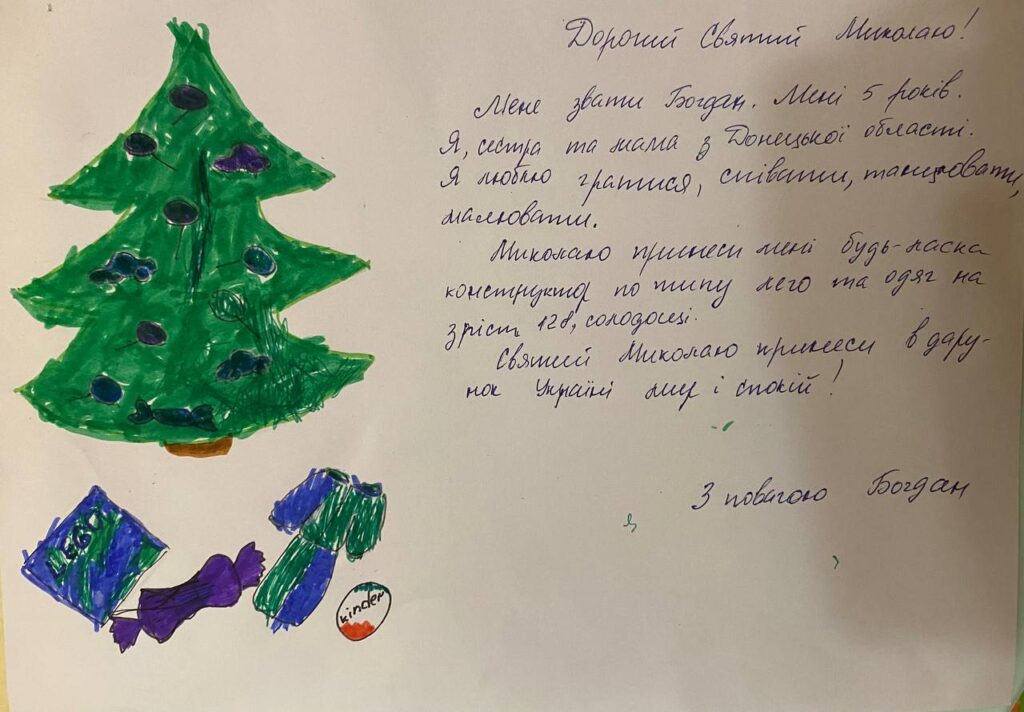 Дорогий Святий Миколаю!
Мене звати Богдан. Мені 5 років.
Я, сестра та мама з Донецької області.
Я люблю гратися, співати, танцювати,
малювати.
Миколаю принеси мені будь-ласка
конструктор по типу лего та одяг на
зріст 128, солодощі.
Святий Миколаю принеси в дару-
нок Україні мир і спокій!
З повагою Богдан
LEGO
kinder